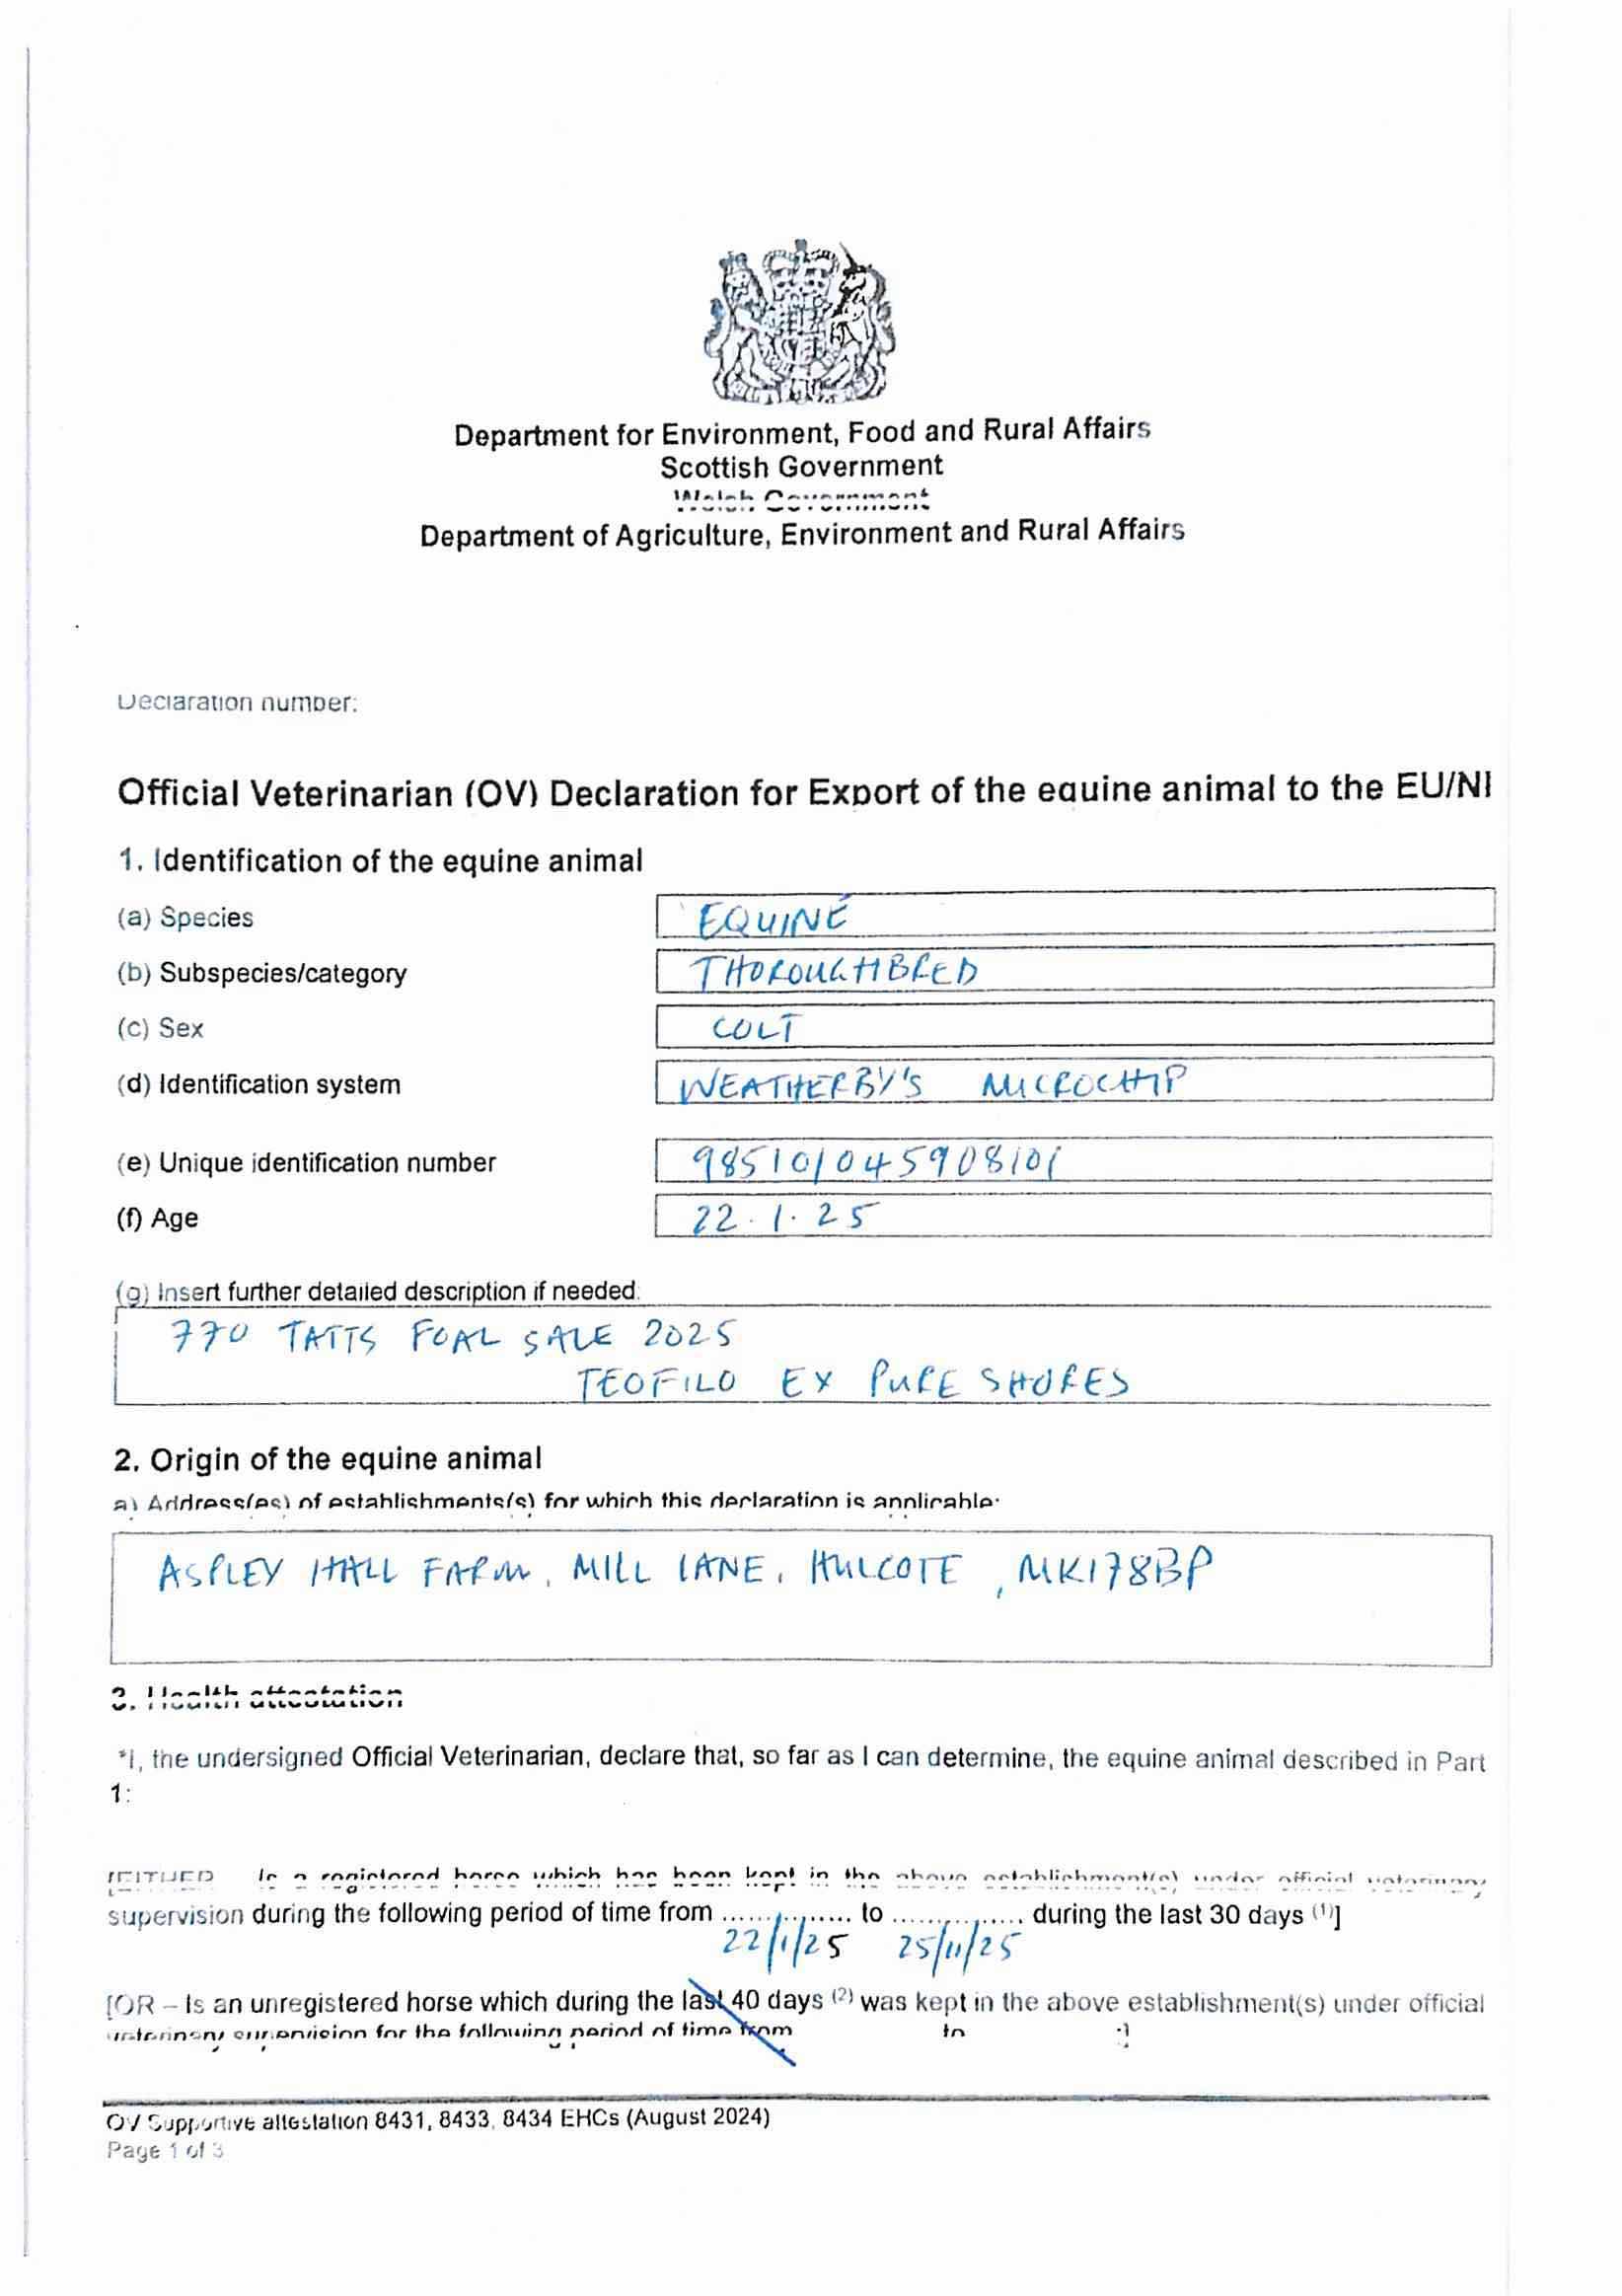 Department for Environment, Food and Rural Affairs
Scottish Government
Welsh Government
Department of Agriculture, Environment and Rural Affairs
Declaration number:
Official Veterinarian (OV) Declaration for Export of the equine animal to the EU/NI
1. Identification of the equine animal
(a) Species EQUINE
(b) Subspecies/category THOROUGHBRED
(c) Sex COLT
(d) Identification system WEATHERBY'S MICROCHIP
(e) Unique identification number 985101045908101
(f) Age 22.1.25
(g) Insert further detailed description if needed:
770 TATTS FOAL SALE 2025
TEOFILO EX PURE SHORES
2. Origin of the equine animal
a) Address(es) of establishments(s) for which this declaration is applicable:
ASPLEY HALL FARM, MILL LANE, HULCOTE, MK178BP
3. Health attestation
*I, the undersigned Official Veterinarian, declare that, so far as I can determine, the equine animal described in Part
1:
[EITHER Is a registered horse which has been kept in the above establishment(s) under official veterinary
supervision during the following period of time from ................ to ................ during the last 30 days (1)]
22/1/25 25/11/25
[OR – Is an unregistered horse which during the last 40 days (2) was kept in the above establishment(s) under official
veterinary supervision for the following period of time from to .]
OV Supportive attestation 8431, 8433, 8434 EHCs (August 2024)
Page 1 of 3